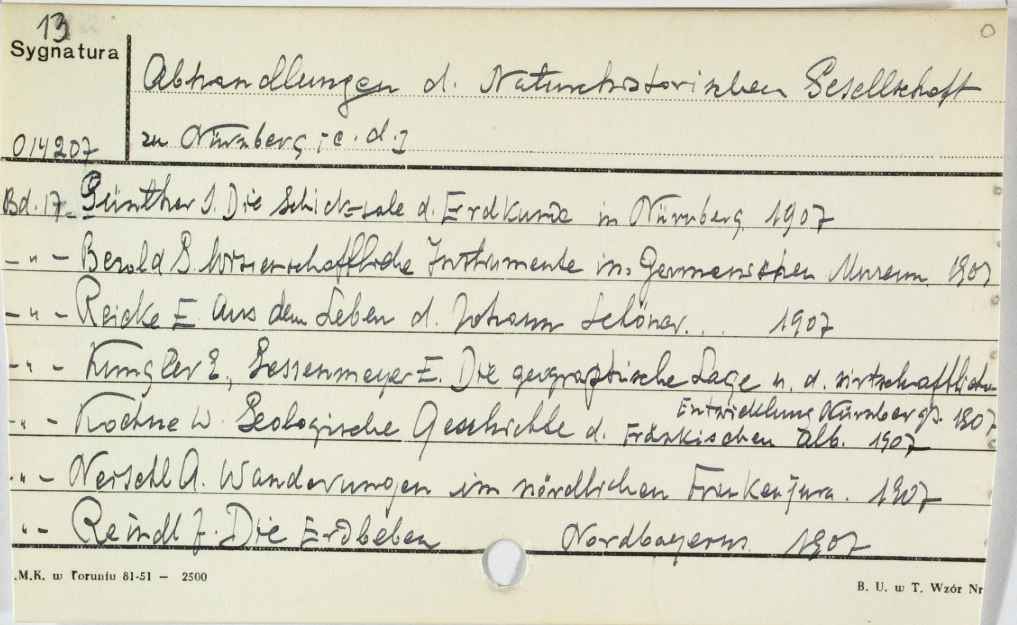 13
Sygnatura
014207
Abhandlungen d. Naturhistorischen Gesellschaft
zu Nürnberg [c.d.]
Bd. 17 - Günther S. Die Schicksale d. Erdkunde in Nürnberg 1907
- " - Bezold G. Wissenschaftliche Instrumente im Germanischen Museum. 1907
- " - Reicke E. Aus dem Leben d. Johann Schöner... 1907
- " - Kungler E., Gessenmeyer E. Die geographische Lage u. d. wirtschaftliche
Entwicklung Nürnbergs. 1907
- " - Koehne W. Geologische Geschichte d. Fränkischen Alb. 1907
" - Neischl A. Wanderungen im nördlichen Frankenjura. 1907
" - Reindl J. Die Erdbeben Nordbayerns 1907
.M.K. w Toruniu 81-51 — 2500
B. U. w T. Wzór Nr